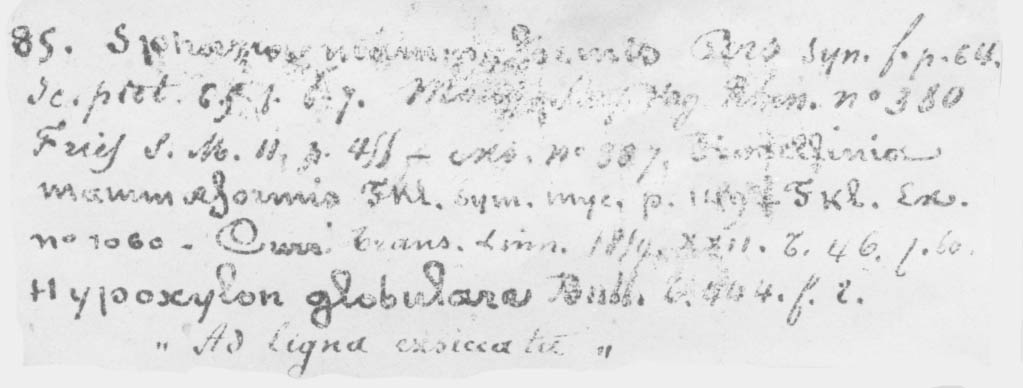 85. Sphæria mammæformis Pers syn. f. p. 64.
Sc. pict. t. 5. f. 6. 7. Moug. Nest. Vog. Rhen. nº 380
Fries S. M. II, p. 455 exs. nº 387,
mammæformis Fkl. sym. myc. p. Fkl. Ex.
nº 1060 - Curr trans. Linn. 1859, XXII. t. 46. f. 60.
Hypoxylon globulare Bull. t. 444. f. 2.
„ Ad ligna exsiccata „